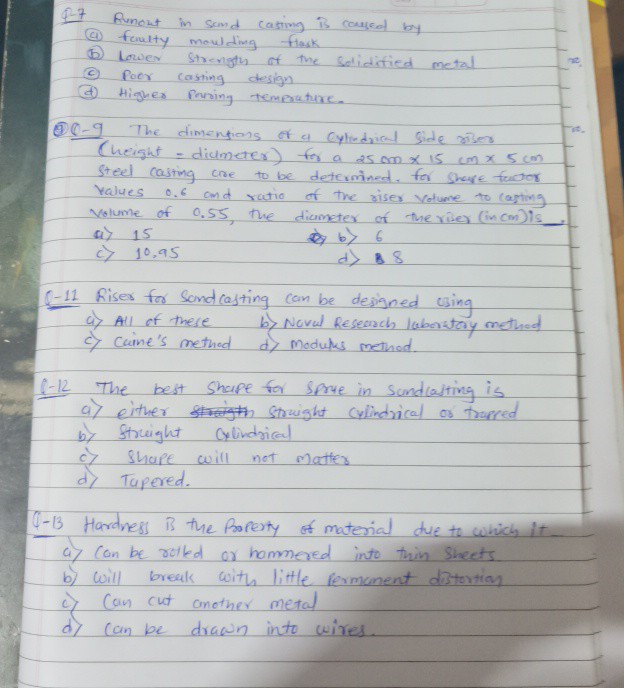 Q-7 Runout in sand casting is caused by
(a) faulty moulding flask
(b) Lower strength of the solidified metal
(c) Poor casting design
(d) Higher Pouring temprature.
Q-9 The dimentions of a Cylindrical Side riser
(height = diameter) for a 25 cm x 15 cm x 5 cm
Steel casting are to be determined. for shape factor
values 0.6 and ratio of the riser volume to casting
volume of 0.55, the diameter of the riser (in cm) is
a) 15 b) 6
c) 10.95 d) 8
Q-11 Riser for Sand casting can be designed using
a) All of these b) Naval Research laboratory method
c) Caine's method d) modulus method.
Q-12 The best shape for sprue in sandcasting is
a) either straight cylindrical or trapped
b) Straight Cylindrical
c) Shape will not matter
d) Tapered.
Q-13 Hardness is the Property of material due to which it
a) Can be rolled or hammered into thin sheets
b) will break with little Permanent distortion
c) Can cut another metal
d) Can be drawn into wires.